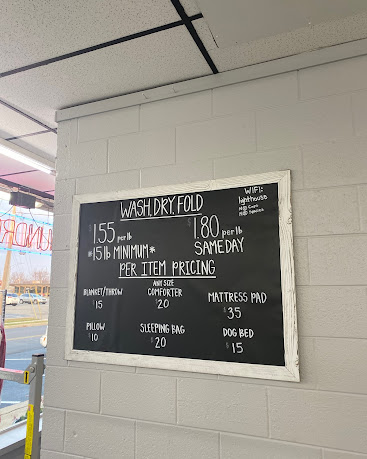 WASH, DRY, FOLD
WIFI:
lighthouse
$1.55 per lb
$1.80 per lb
*15 lb MINIMUM*
SAME DAY
PER ITEM PRICING
BLANKET/THROW
$15
ANY SIZE
COMFORTER
$20
MATTRESS PAD
$35
PILLOW
$10
SLEEPING BAG
$20
DOG BED
$15